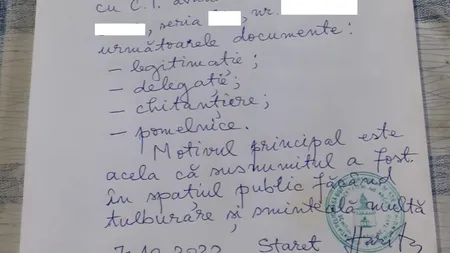 cu C.I.
seria nr.
următoarele documente:
- legitimație;
- delegație;
- chitanțiere;
- pomelnice.
Motivul principal este
acela că susnumitul a fost
în spațiul public făcând
tulburare și sminteală multă
Stareț